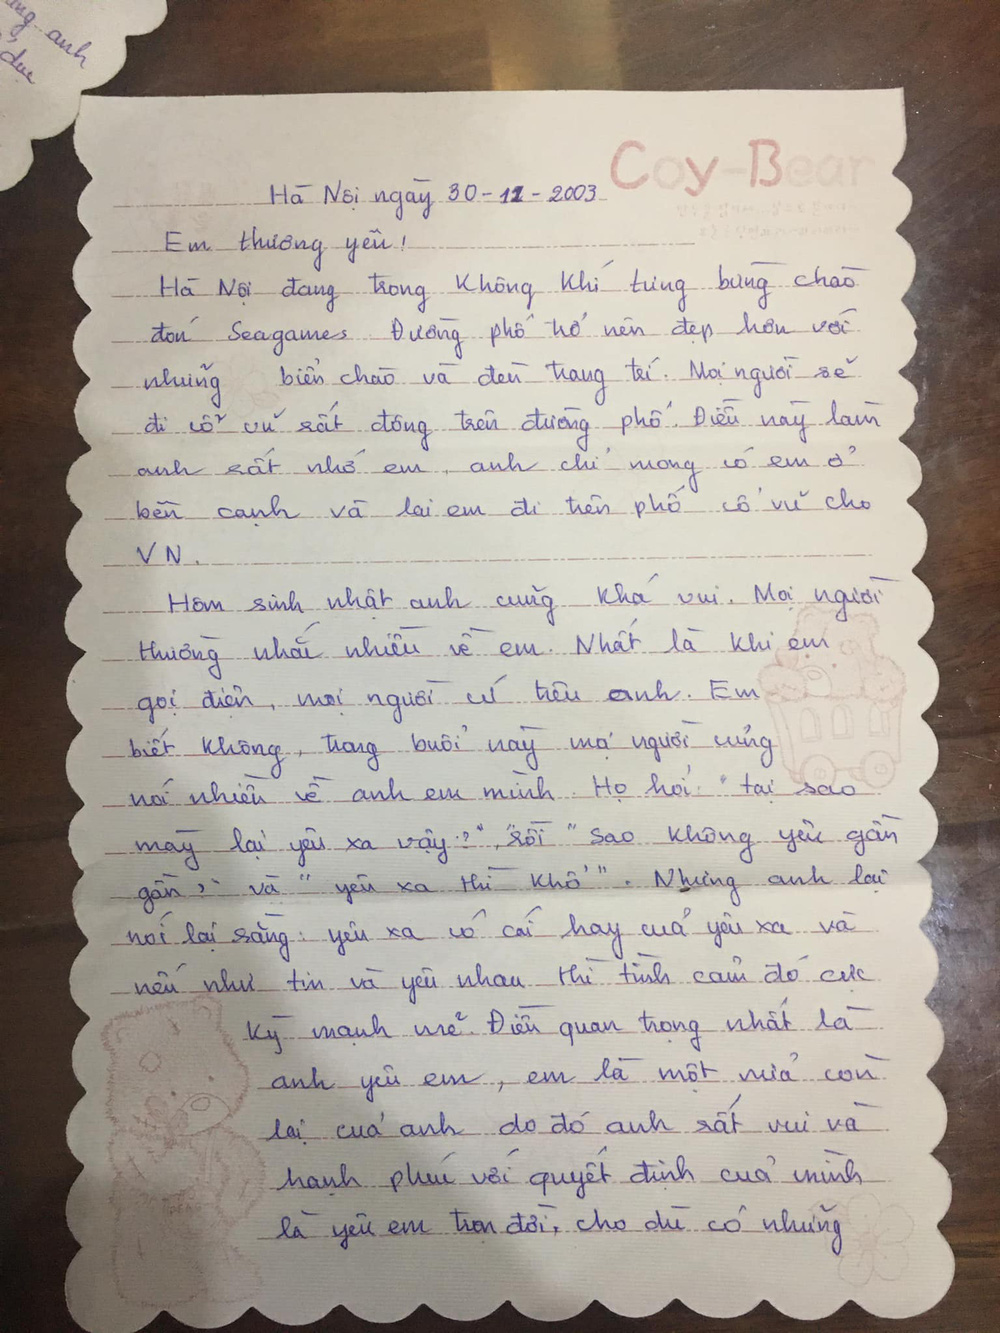 anh
Coy-Bear
Hà Nội ngày 30-11-2003
Em thương yêu!
Hà Nội đang trong không khí tưng bừng chào
đón Seagames. Đường phố trở nên đẹp hơn với
những biển chào và đèn trang trí. Mọi người sẽ
đi cổ vũ rất đông trên đường phố. Điều này làm
anh rất nhớ em, anh chỉ mong có em ở
bên cạnh và lai em đi trên phố cổ vũ cho
VN.
Hôm sinh nhật anh cũng khá vui. Mọi người
thường nhắc nhiều về em. Nhất là khi em
gọi điện, mọi người cứ trêu anh. Em
biết không, trong buổi này mọi người cũng
nói nhiều về anh em mình. Họ hỏi "tại sao
mày lại yêu xa vậy?", rồi "sao không yêu gần
gần," và "yêu xa thì khổ". Nhưng anh lại
nói lại rằng: yêu xa có cái hay của yêu xa và
nếu như tin và yêu nhau thì tình cảm đó cực
kỳ mạnh mẽ. Điều quan trọng nhất là
anh yêu em, em là một nửa còn
lại của anh do đó anh rất vui và
hạnh phúc với quyết định của mình
là yêu em trọn đời, cho dù có những